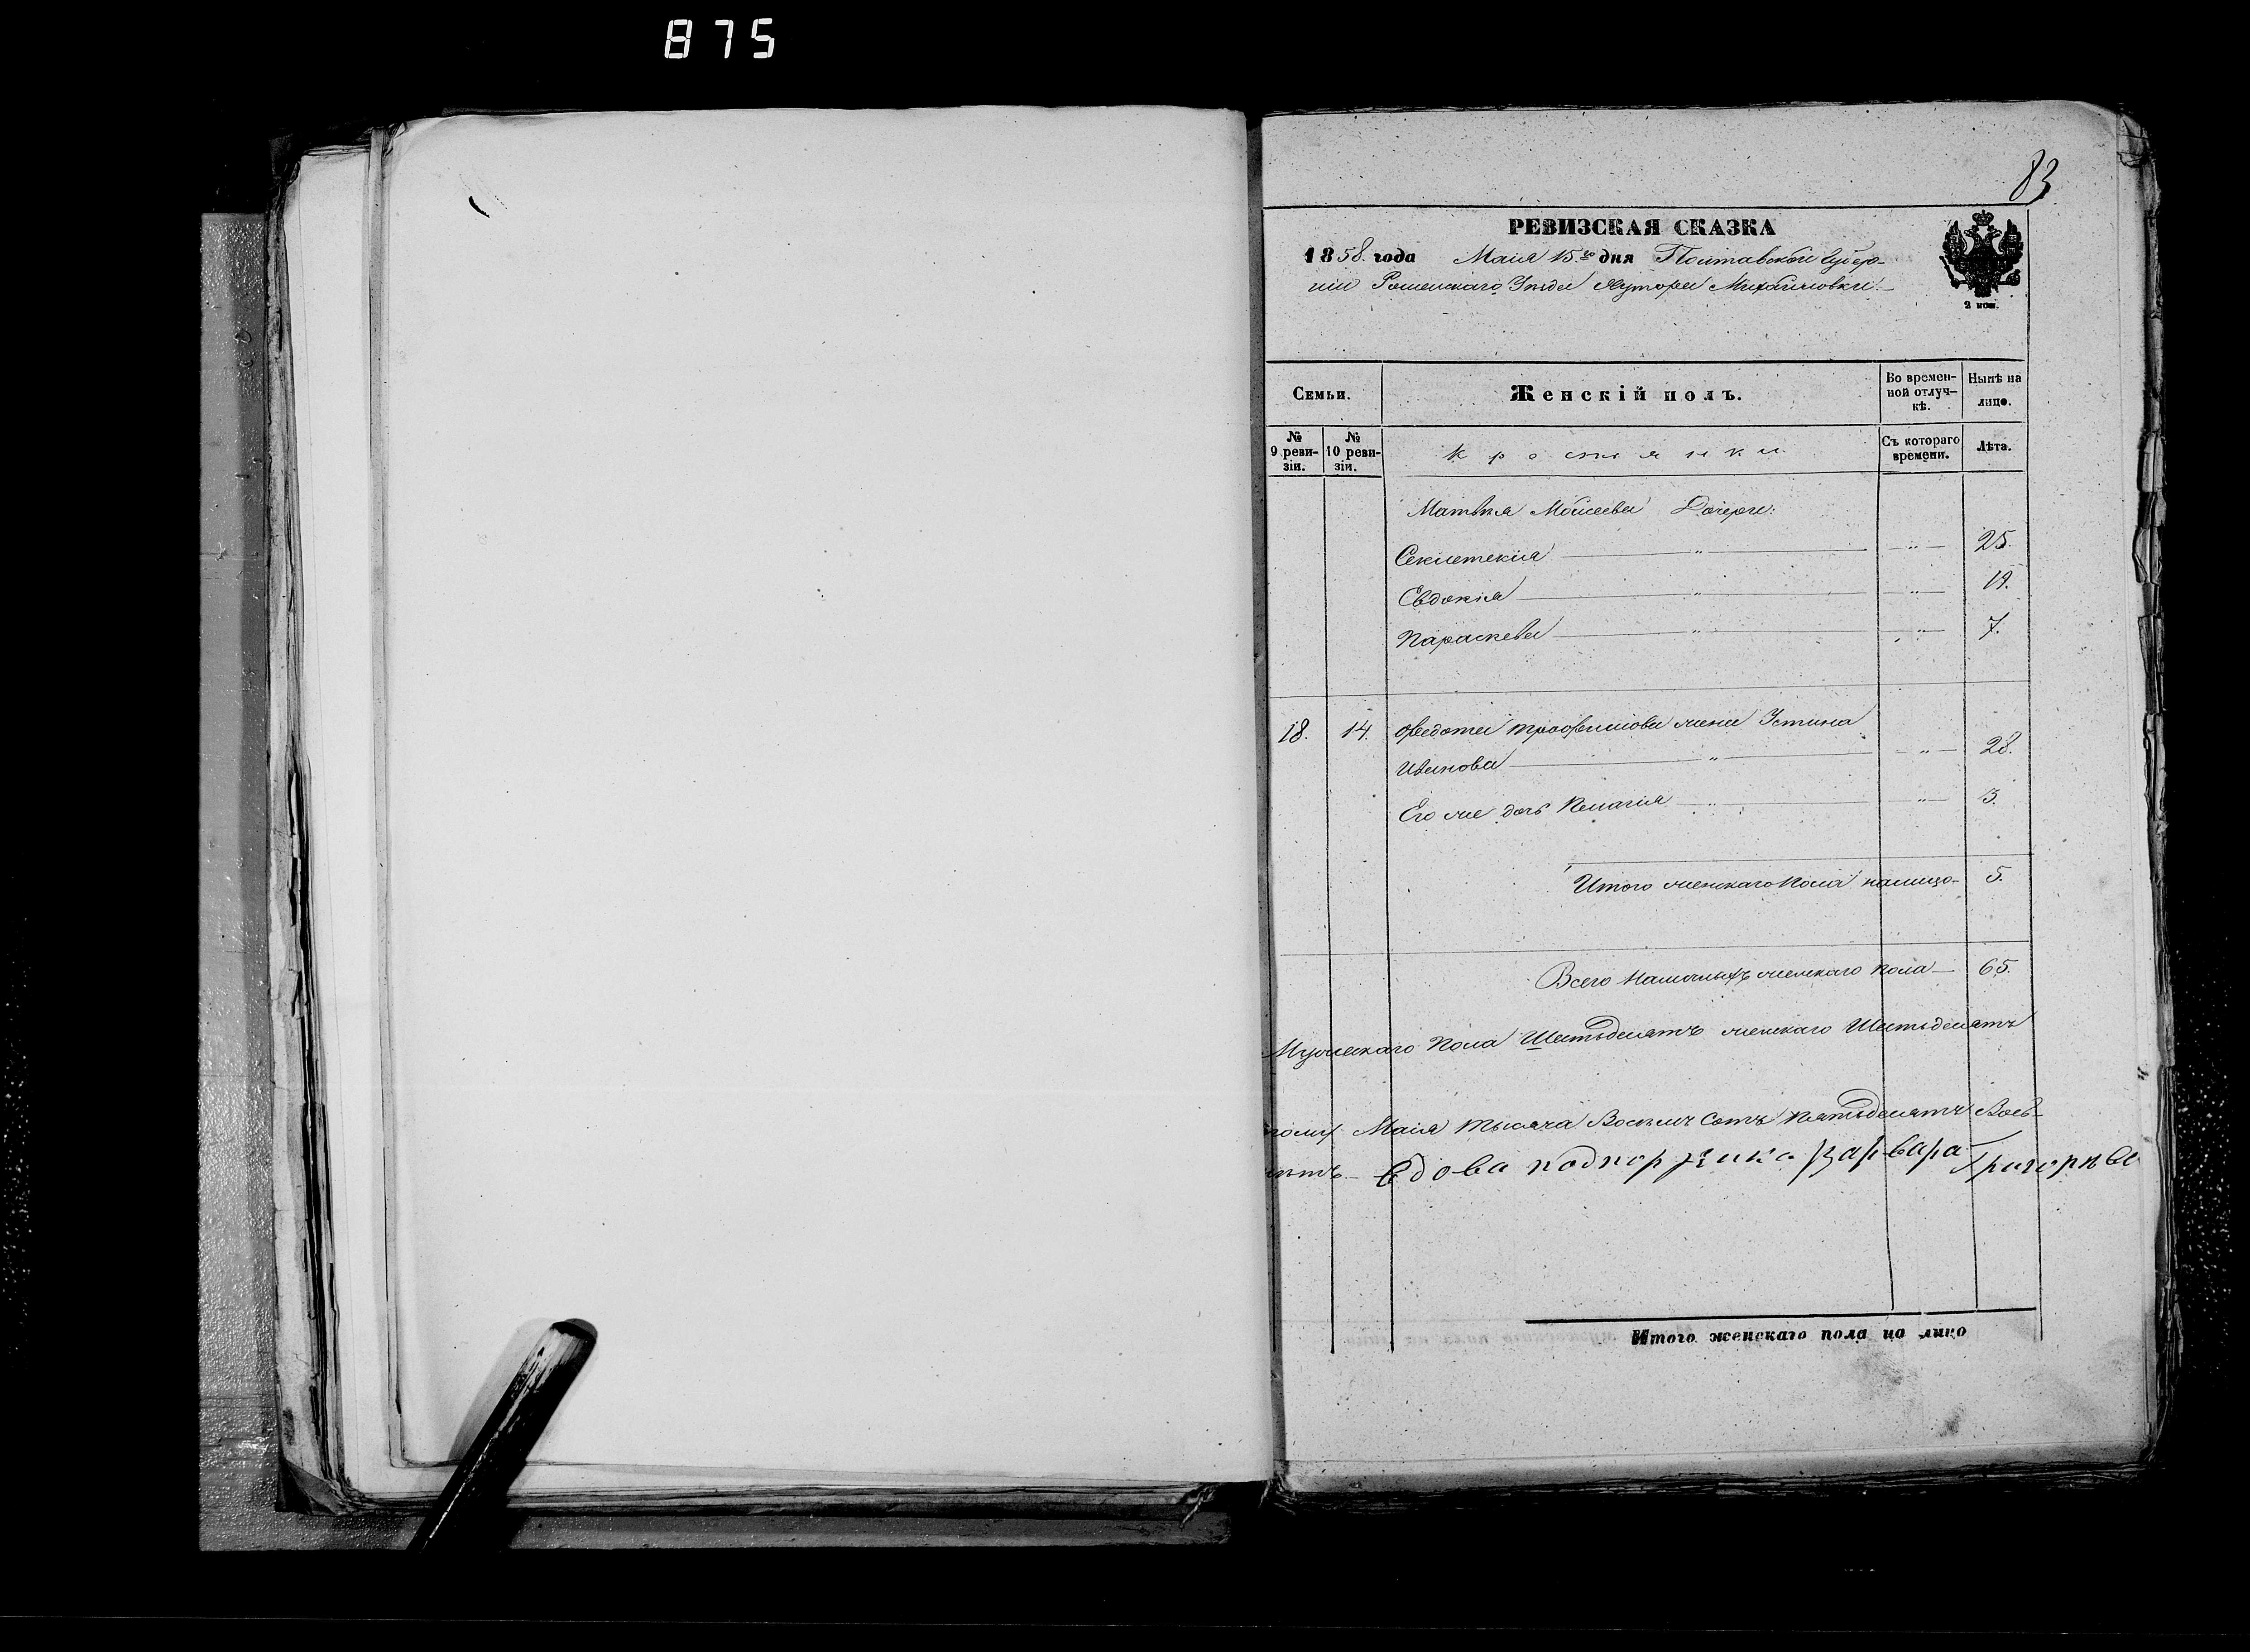 875
83
РЕВИЗСКАЯ СКАЗКА
1858. года Маія 15.го дня Полтавской Губер-
ніи Роменскаго Уезда Хутора Михайловки
2 коп.
Семьи.
Женскій полъ.
Во времен-
ной отлуч-
кѣ.
Нынѣ на
лицо.
№
9 реви-
зіи.
№
10 реви-
зіи.
Крестьянки
Съ котораго
времени.
Лѣта.
Матвея Моисеева Дочери:
Секлетекия — " — — " — 25.
Евдокия — " — — " — 19.
Параскева — " — — " — 7.
18. 14. Федота Трофимова жена Устина
Иванова — " — — " — 28.
Его же дочь Пелагия — " — — " — 3.
Итого женскаго пола налицо- 5.
Всего наличныхъ женскаго пола — 65.
Мужескаго Пола Шестьдесятъ женскаго Шестьдесятъ
Маія тысяча Восемь Сотъ пятьдесятъ Вось-
Вдова подпоручика Варвара Григорьева
Итого женскаго пола на лицо